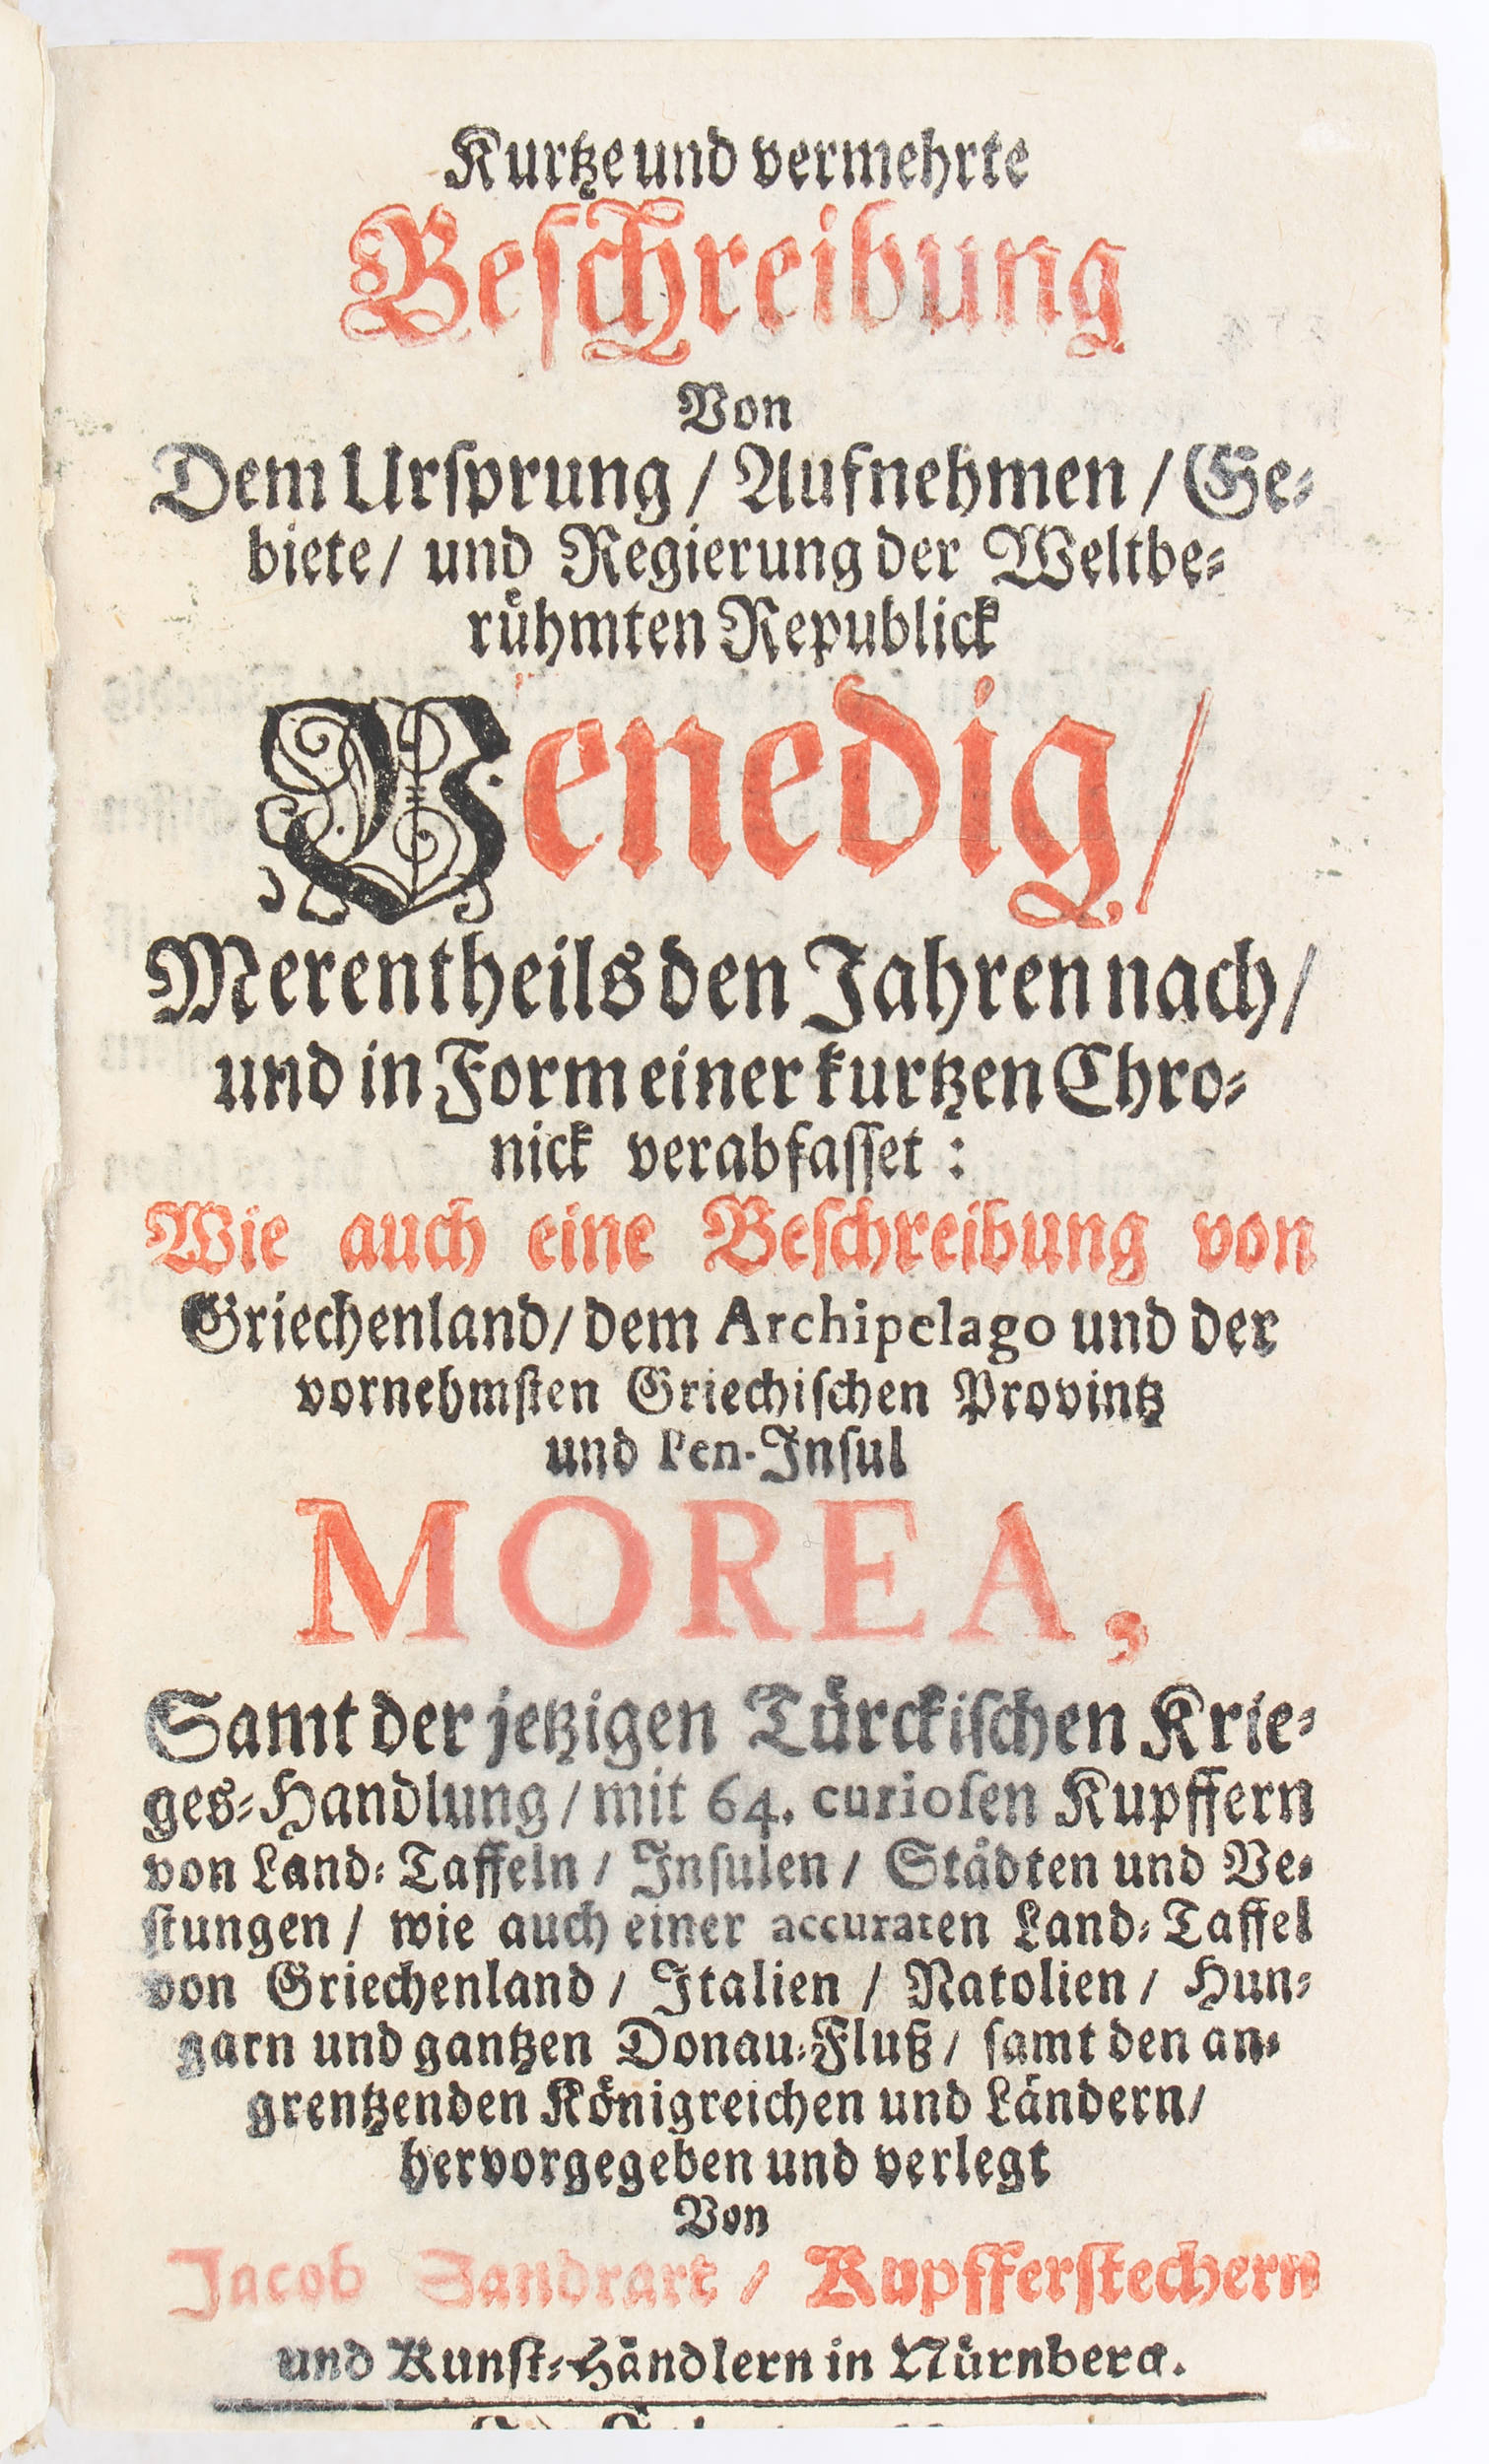 Kurtze und vermehrte
Beſchreibung
Von
Dem Urſprung / Aufnehmen / Ge⸗
biete / und Regierung der Weltbe⸗
ruͤhmten Republick
Venedig /
Merentheils den Jahren nach /
und in Form einer kurtzen Chro⸗
nick verabfaſſet :
Wie auch eine Beſchreibung von
Griechenland / dem Archipelago und der
vornehmſten Griechiſchen Provintz
und Pen-Inſul
MOREA,
Samt der jetzigen Tuͤrckiſchen Krie⸗
ges⸗Handlung / mit 64. curioſen Kupffern
von Land⸗Taffeln / Inſulen / Staͤdten und Ve⸗
ſtungen / wie auch einer accuraten Land⸗Taffel
von Griechenland / Italien / Natolien / Hun⸗
garn und gantzen Donau⸗Fluß / ſamt den an⸗
grentzenden Koͤnigreichen und Laͤndern /
hervorgegeben und verlegt
Von
Jacob Sandrart / Kupfferſtechern
und Kunſt⸗Haͤndlern in Nuͤrnberg.